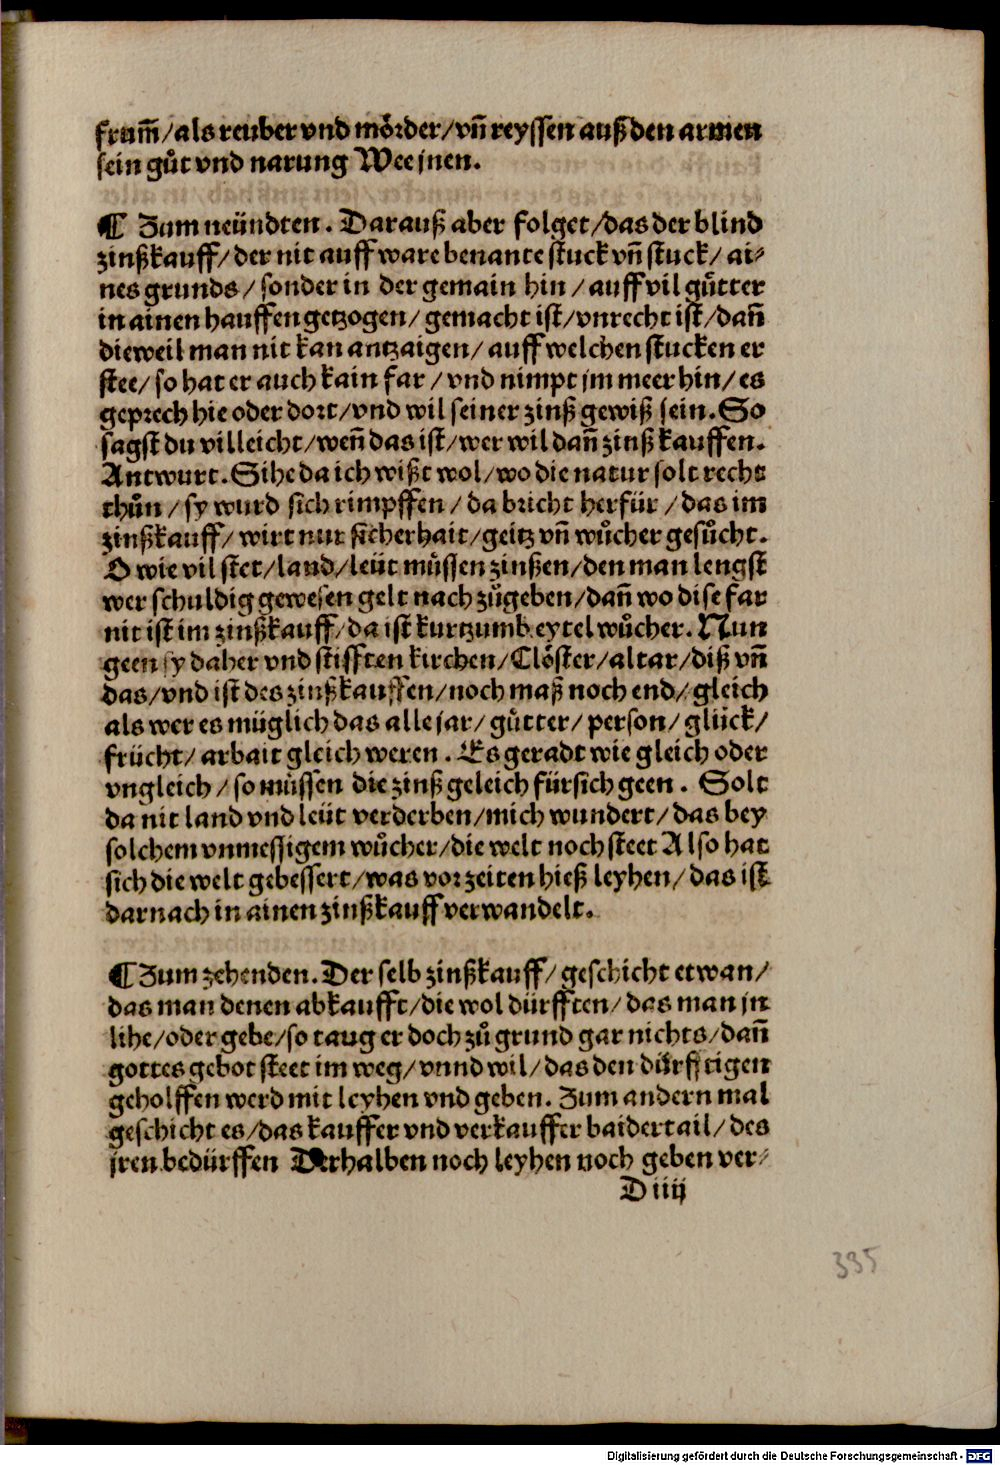 frum̃/als reuber vnd mo̊rder/vñ reyssen auß den armen
sein gůt vnd narung Wee jnen.
¶ Zum neündten. Darauß aber folget/das der blind
zinßkauff/der nit auff ware benante stuck vñ stuck/ ai-
nes grunds/ sonder in der gemain hin/ auff vil gůtter
in ainen hauffen getzogen/ gemacht ist/vnrecht ist/dañ
dieweil man nit kan antzaigen/ auff welchen stucken er
stee/ so hat er auch kain far/vnd nimpt jm meer hin/ es
geprech hie oder dort/vnd wil seiner zinß gewiß sein. So
sagst du villeicht/weñ das ist/wer wil dañ zinß kauffen.
Antwurt. Sihe da ich wißt wol/wo die natur solt recht
thůn/sy wurd sich rimpffen/da bricht herfür/das im
zinßkauff/wirt nur sicherhait/geitz vñ wůcher gesůcht.
O wie vil stet/land/leüt můssen zinßen/den man lengst
wer schuldig gewesen gelt nach zůgeben/dañ wo dise far
nit ist im zinßkauff/da ist kurtzumb eytel wůcher. Nun
geen sy daher vnd stifften kirchen/Clo̊ster/altar/diß vñ
das/vnd ist des zinßkauffen/noch maß noch end/gleich
als wer es müglich das alle jar/ gůtter/ person/ glück/
frücht/ arbait gleich weren. Es geradt wie gleich oder
vngleich/so můssen die zinß geleich fürsich geen. Solt
da nit land vnd leüt verderben/mich wundert/das bey
solchem vnmessigem wůcher/die welt noch steet Also hat
sich die welt gebessert/was vorzeiten hieß leyhen/das ist
darnach in ainen zinßkauff verwandelt.
¶ Zum zehenden. Der selb zinßkauff/geschicht etwan/
das man denen abkaufft/die wol dürfften/das man jn
lihe/oder gebe/so taug er doch zů grund gar nichts/dañ
gottes gebot steet im weg/vnnd wil/das den dürfftigen
geholffen werd mit leyhen vnd geben. Zum andern mal
geschicht es/das kauffer vnd verkauffer baidertail/des
jren bedürffen Derhalben noch leyhen noch geben ver-
D iiij
335
Digitalisierung gefördert durch die Deutsche Forschungsgemeinschaft - DFG